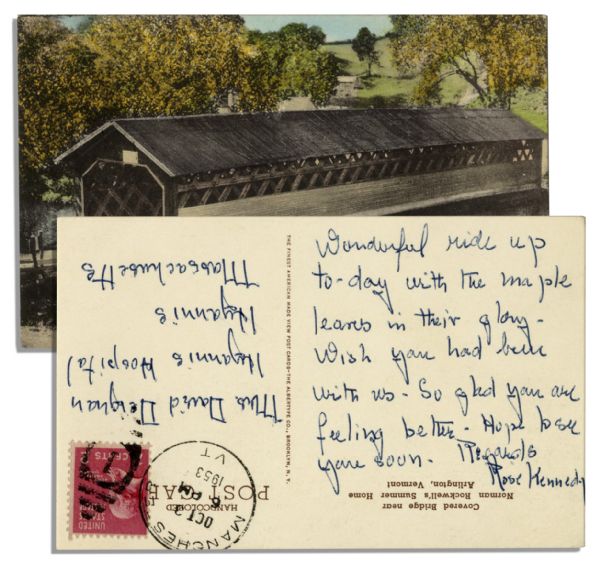 Wonderful ride up
to-day with the maple
leaves in their glory -
Wish you had been
with us - So glad you are
feeling better - Hope to see
you soon. Regards
Rose Kennedy
Mrs David Deignan
Hyannis Hospital
Hyannis
Massachusetts
THE FINEST AMERICAN MADE VIEW POST CARDS—THE ALBERTYPE CO., BROOKLYN, N. Y.
Covered Bridge near
Norman Rockwell's Summer Home
Arlington, Vermont
HANDCOLORED
POST CAR
MANCHES
OCT
6 PM
1953
VT
UNITED
STATES
CENTS 2